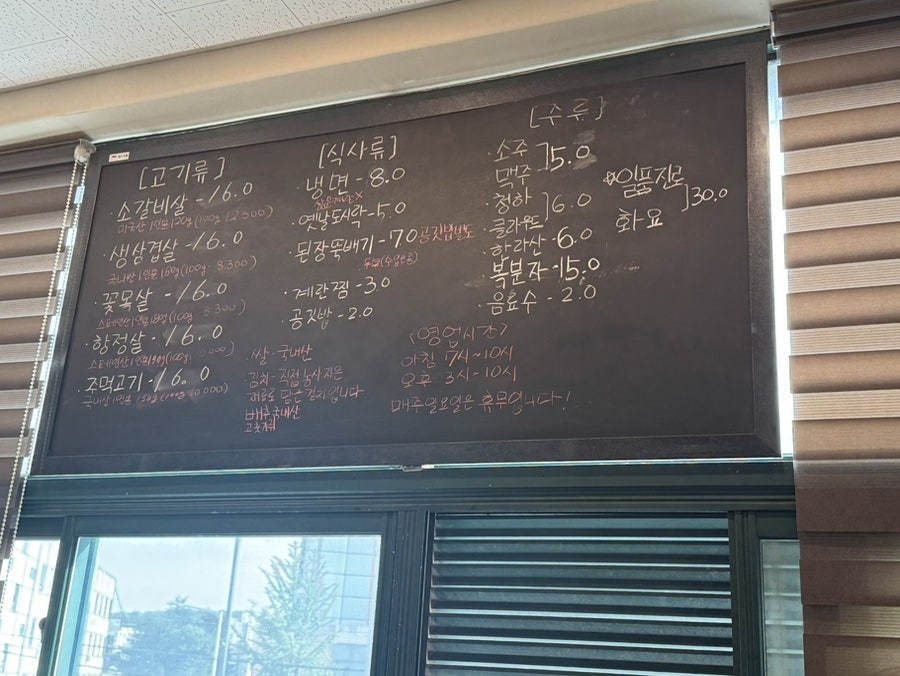 [고기류]
·소갈비살 - 16.0
미국산 1인분 120g (100g 12,500)
·생삼겹살 - 16.0
국내산 1인분 (100g 8,300)
·꽃목살 - 16.0
스페인산 1인분 (100g 8,300)
·항정살 - 16.0
스페인산 1인분 (100g 10,000)
·주먹고기 - 16.0
국내산 1인분 150g (100g 10,000)
[식사류]
·냉면 - 8.0
·옛날도시락 - 5.0
·된장뚝배기 - 7.0 공깃밥별도
·계란찜 - 3.0
·공깃밥 - 2.0
·쌀 - 국내산
김치 - 직접 농사 지은
재료로 담근 김치입니다
배추 국내산
[주류]
·소주
맥주 ] 5.0
·청하
·클라우드 ] 6.0
·한라산 - 6.0
·복분자 - 15.0
·음료수 - 2.0
일품진로
화요 ] 30.0
<영업시간>
아침 7시~10시
오후 3시~10시
매주 일요일은 휴무입니다!